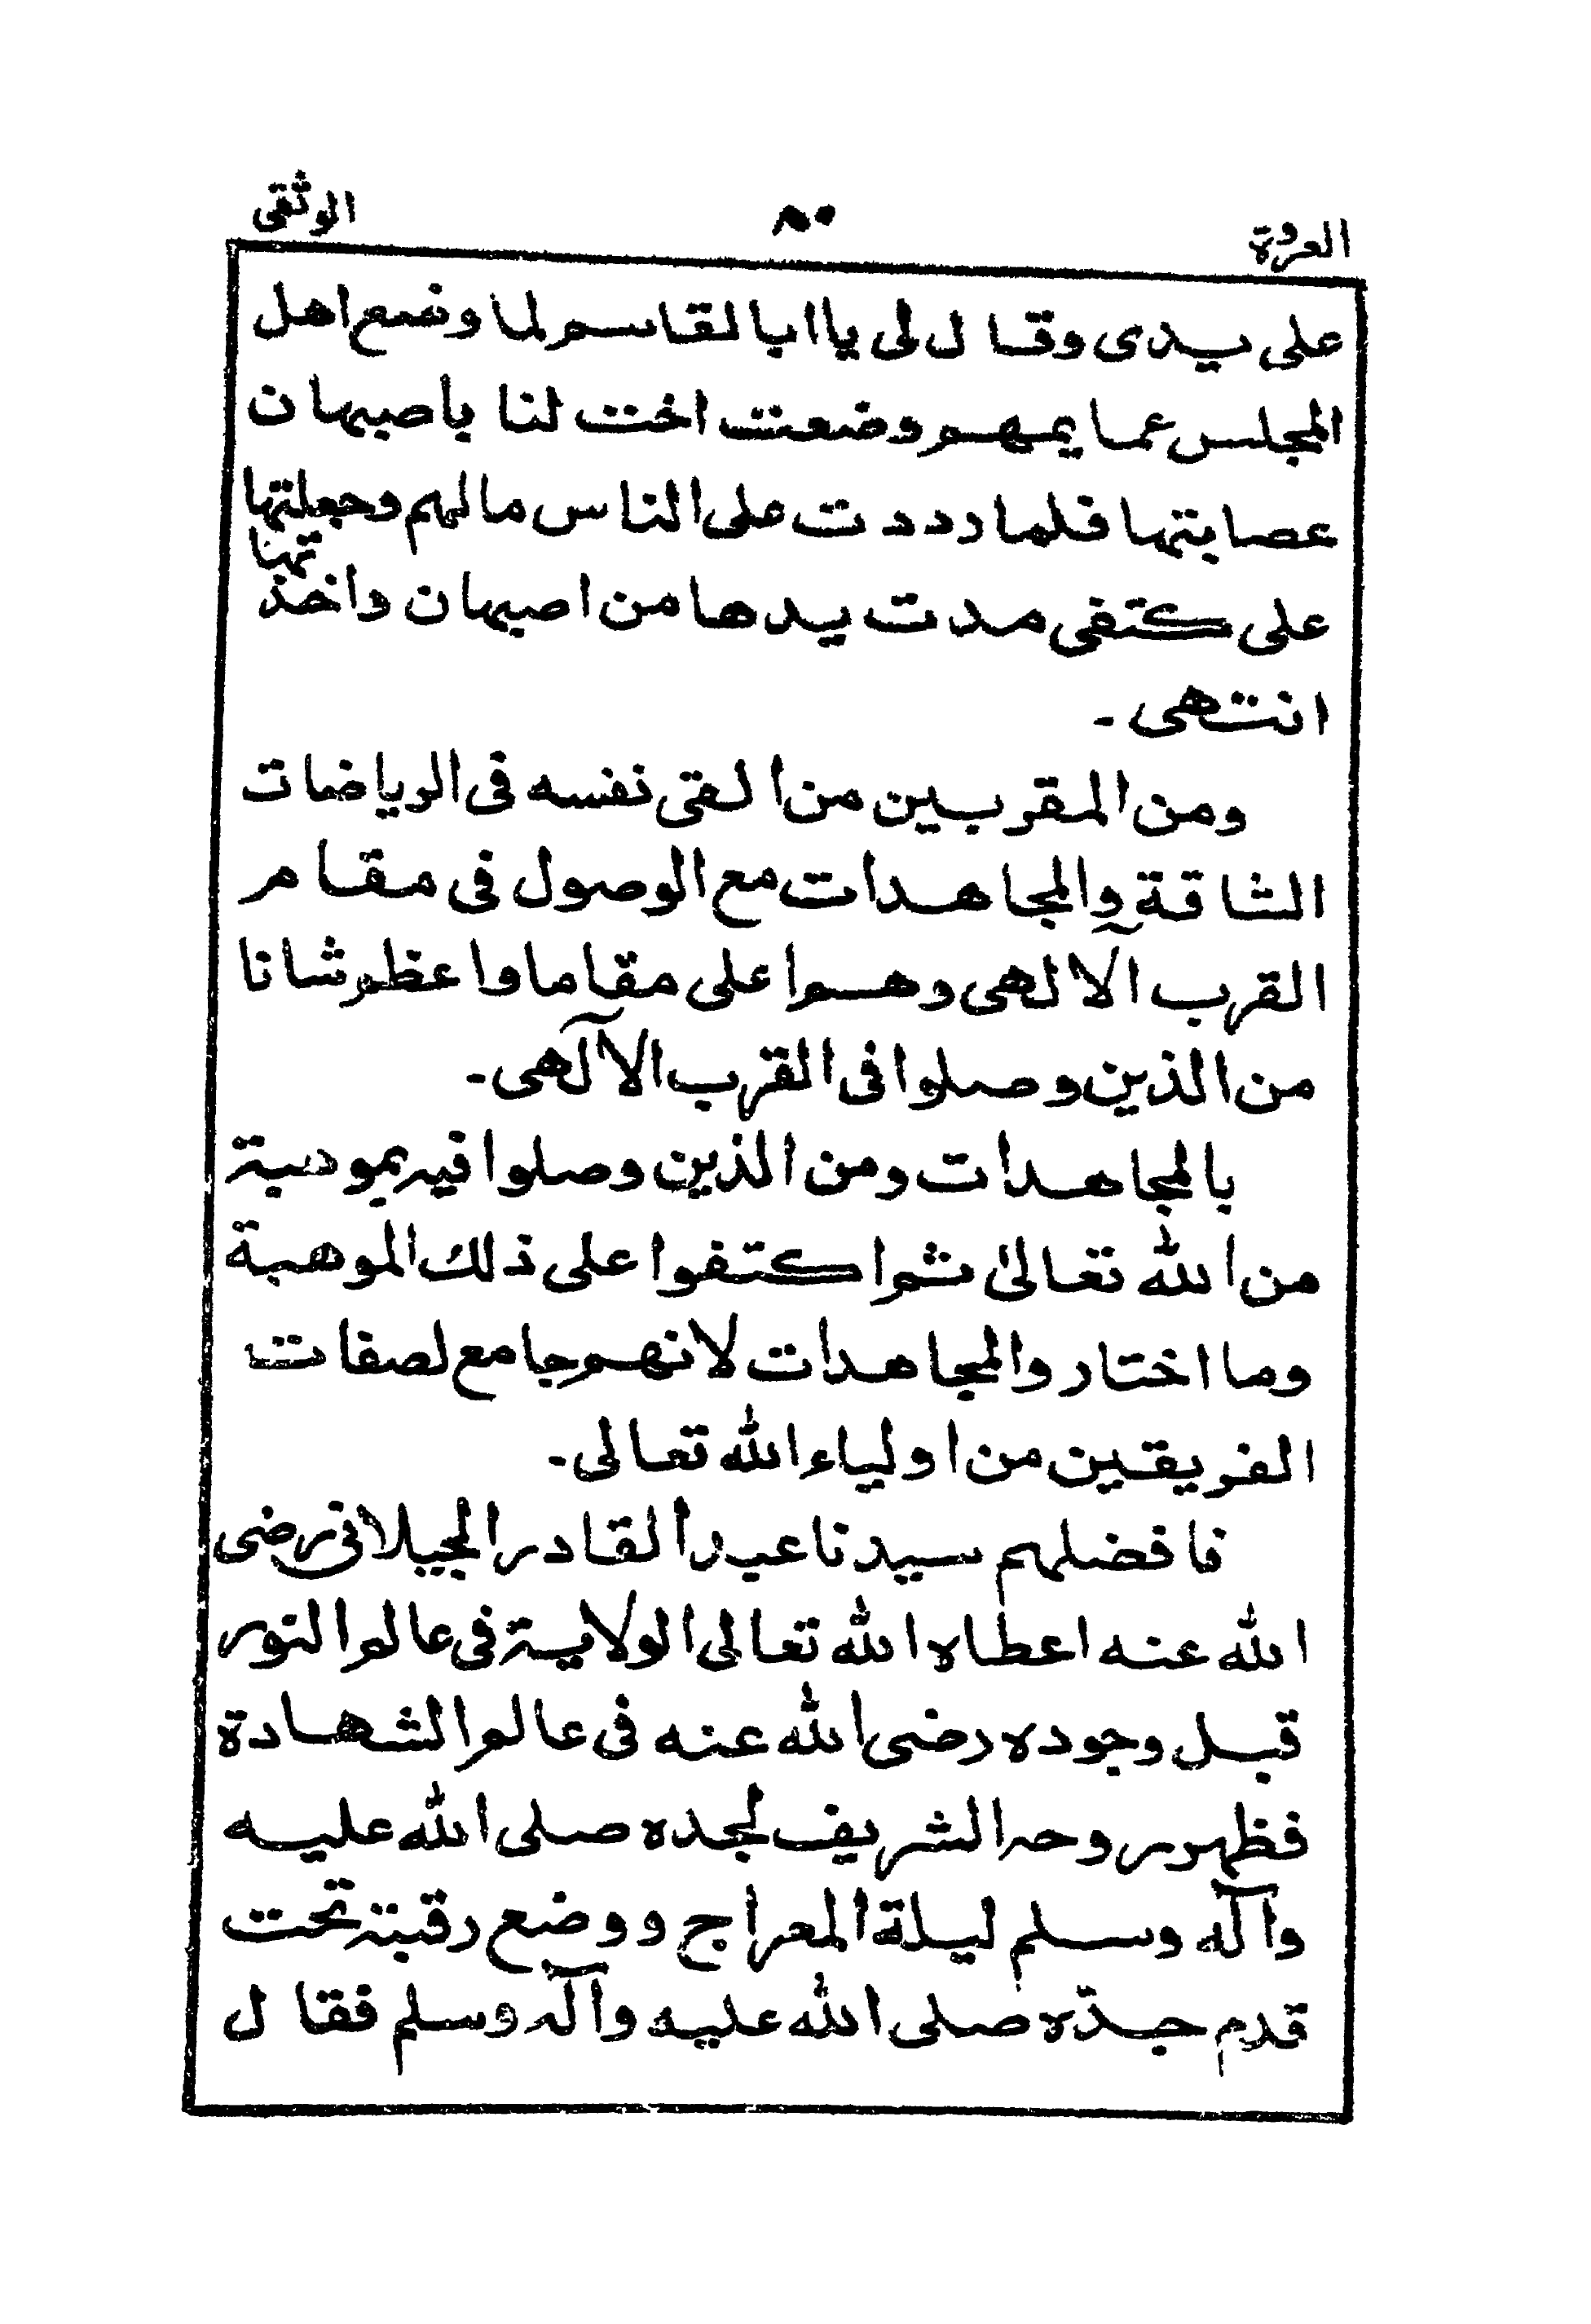 العروة ٨٠ الوثقى
على يدى وقال لى يا ابا القاسم لما وضع اهل
المجلس عمايمهم وضعت اخت لنا باصبهان
عصابتها فلما رددت على الناس مالهم وجعلتها
على كتفى مدت يدها من اصبهان واخذتها
انتهى -
ومن المقربين من القى نفسه فى الرياضات
الشاقة والمجاهدات مع الوصول فى مقام
القرب الآلهى وهم اعلى مقاما واعظم شانا
من الذين وصلوا فى القرب الآلهى -
بالمجاهدات ومن الذين وصلوا فيه بموهبة
من الله تعالىٰ ثم اكتفوا على ذلك الموهبة
وما اختار والمجاهدات لانهم جامع لصفات
الفريقين من اولياء الله تعالى -
فافضلهم سيدنا عبد القادر الجيلانى رضى
الله عنه اعطاه الله تعالى الولاية فى عالم النور
قبل وجوده رضى الله عنه فى عالم الشهادة
فظهر روحه الشريف لجده صلى الله عليه
وآله وسلم ليلة المعراج ووضع رقبته تحت
قدم جدّه صلى الله عليه وآله وسلم فقال